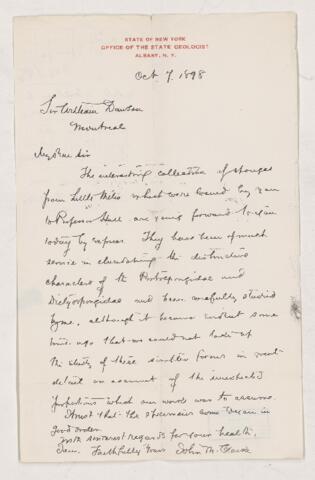 STATE OF NEW YORK
OFFICE OF THE STATE GEOLOGIST
ALBANY, N. Y.
Oct 7. 1898
Sir William Dawson
Montreal
My Dear Sir
The interesting collection of sponges
from Little Metis which were loaned by you
to Professor Hall are going forward to you
today by express. They have been of much
service in elucidating the distinctive
characters of the Protospongidae and
Dictyospongidae and been carefully studied
by me, although it became evident some
time ago that we could not take up
the study of these simpler forms in great
detail on account of the unexpected
proportions which our work was to assume.
I trust that the specimens come to you in
good order.
With sincerest regards for your health,
I am Faithfully Yours John M. Clarke